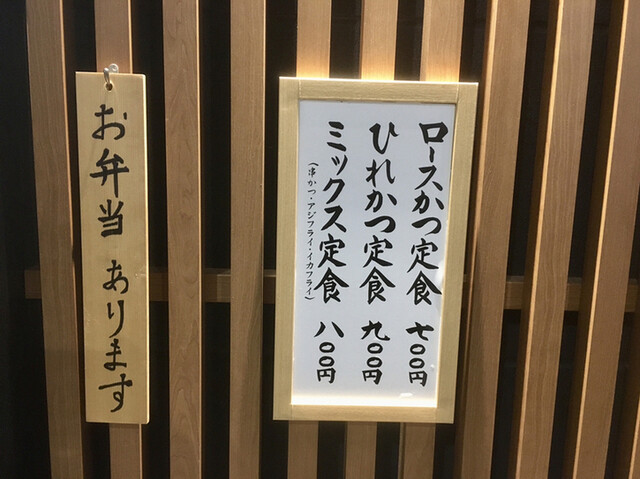 お弁当 あります
ロースかつ定食 七〇〇円
ひれかつ定食 九〇〇円
ミックス定食 八〇〇円
(串かつ・アジフライ・イカフライ)